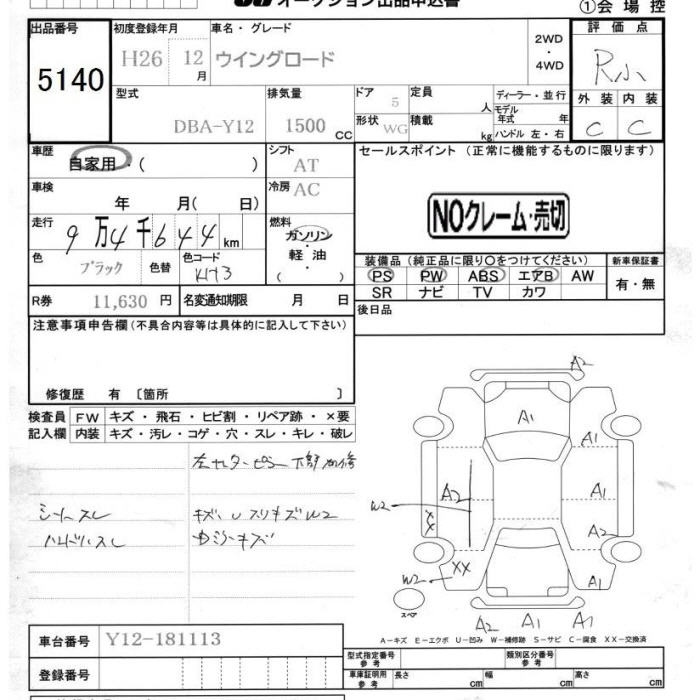 オークション出品申込書
①会場控
出品番号
5140
初度登録年月
H26 12 月
車名・グレード
ウイングロード
2WD
・
4WD
評価点
R小
外装 内装
C C
型式
DBA-Y12
排気量
1500 cc
ドア 5
形状 WG
定員 人
積載 kg
ディーラー・並行
モデル年式 年
ハンドル 左・右
車歴
自家用・( )
シフト
AT
セールスポイント (正常に機能するものに限ります)
NOクレーム・売切
車検
年 月( 日)
冷房
AC
走行
9万4千644km
燃料
ガソリン
・
軽油
( )
色
ブラック
色替
色コード
KH3
装備品(純正品に限り○をつけてください)
新車保証書
PS PW ABS エアB AW
SR ナビ TV カワ
有・無
R券 11,630円
名変通知期限 月 日
後日品
注意事項申告欄(不具合内容等は具体的に記入して下さい)
修復歴 有 〔箇所 〕
検査員 FW キズ・飛石・ヒビ割・リペア跡・×要
記入欄 内装 キズ・汚レ・コゲ・穴・スレ・キレ・破レ
シートスレ
ハンドルスレ
A2
A1
A1
W2
A2
A1
XX
A2
XX
W2
A1
スペア
A2 A1 A1
A−キズ E−エクボ U−凹み W−補修跡 S−サビ C−腐食 XX−交換済
車台番号 Y12-181113
登録番号
型式指定番号
参考
類別区分番号
参考
車庫証明用
参考
長さ cm
幅 cm
高さ cm